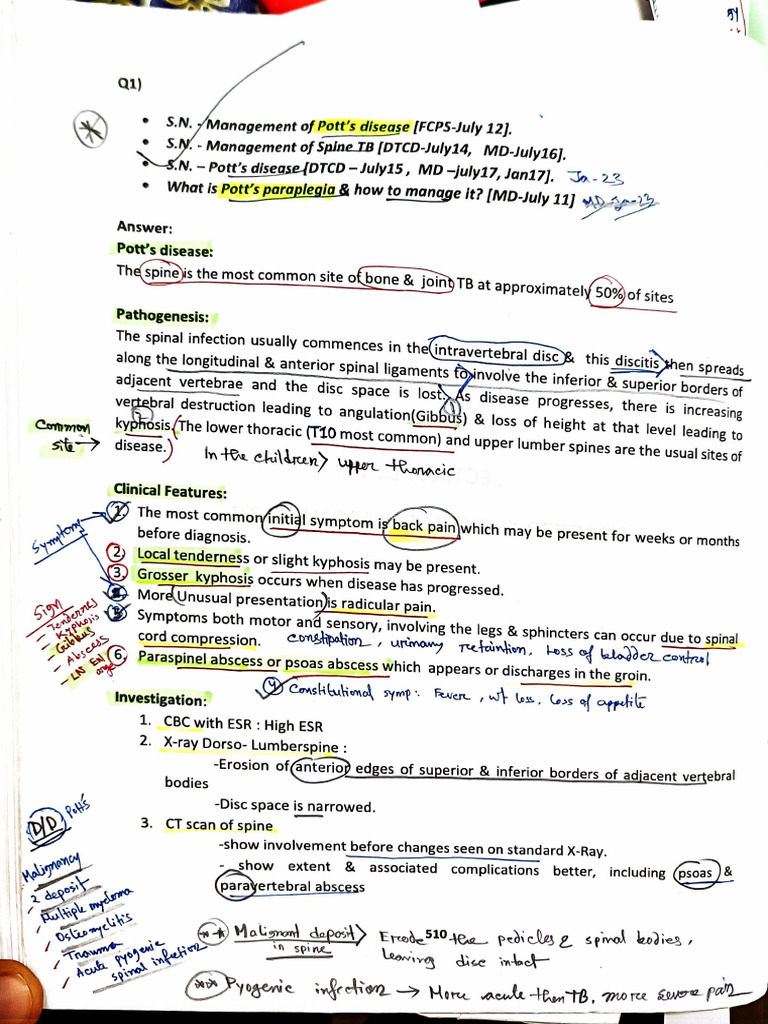 54
Q1)
• S.N. - Management of Pott's disease [FCPS-July 12].
• S.N. - Management of Spine TB [DTCD-July14, MD-July16].
• S.N. – Pott's disease [DTCD – July15 , MD –july17, Jan17]. Ja-23
• What is Pott's paraplegia & how to manage it? [MD-July 11] MD-Ja-23
Answer:
Pott's disease:
The spine is the most common site of bone & joint TB at approximately 50% of sites
Pathogenesis:
The spinal infection usually commences in the intravertebral disc & this discitis then spreads
along the longitudinal & anterior spinal ligaments to involve the inferior & superior borders of
adjacent vertebrae and the disc space is lost. As disease progresses, there is increasing
vertebral destruction leading to angulation(Gibbus) & loss of height at that level leading to
kyphosis. (The lower thoracic (T10 most common) and upper lumber spines are the usual sites of
disease.)
Common
site →
In the children > upper thoracic
Clinical Features:
1. The most common initial symptom is back pain which may be present for weeks or months
before diagnosis.
2. Local tenderness or slight kyphosis may be present.
3. Grosser kyphosis occurs when disease has progressed.
2. More Unusual presentation is radicular pain.
3 Symptoms both motor and sensory, involving the legs & sphincters can occur due to spinal
cord compression. constipation, urinary retaintion, Loss of bladder control
6. Paraspinel abscess or psoas abscess which appears or discharges in the groin.
4 Constitutional symp: Fever, wt loss, loss of appetite
Symptoms
Sign
- Tenderness
- Kyphosis
- Gibbus
- Abscess
- LN En
Investigation:
1. CBC with ESR : High ESR
2. X-ray Dorso- Lumberspine :
-Erosion of anterior edges of superior & inferior borders of adjacent vertebral
bodies
-Disc space is narrowed.
3. CT scan of spine
-show involvement before changes seen on standard X-Ray.
- show extent & associated complications better, including psoas &
paravertebral abscess
D/D Pott's
Malignancy
2 deposit
- Multiple myeloma
- Osteomyelitis
- Trauma
- Acute pyogenic
spinal infection
** Malignant deposit > Erode the pedicles & spinal bodies,
in spine
leaving disc intact
510
*** Pyogenic infection → More acute then TB, more severe pain